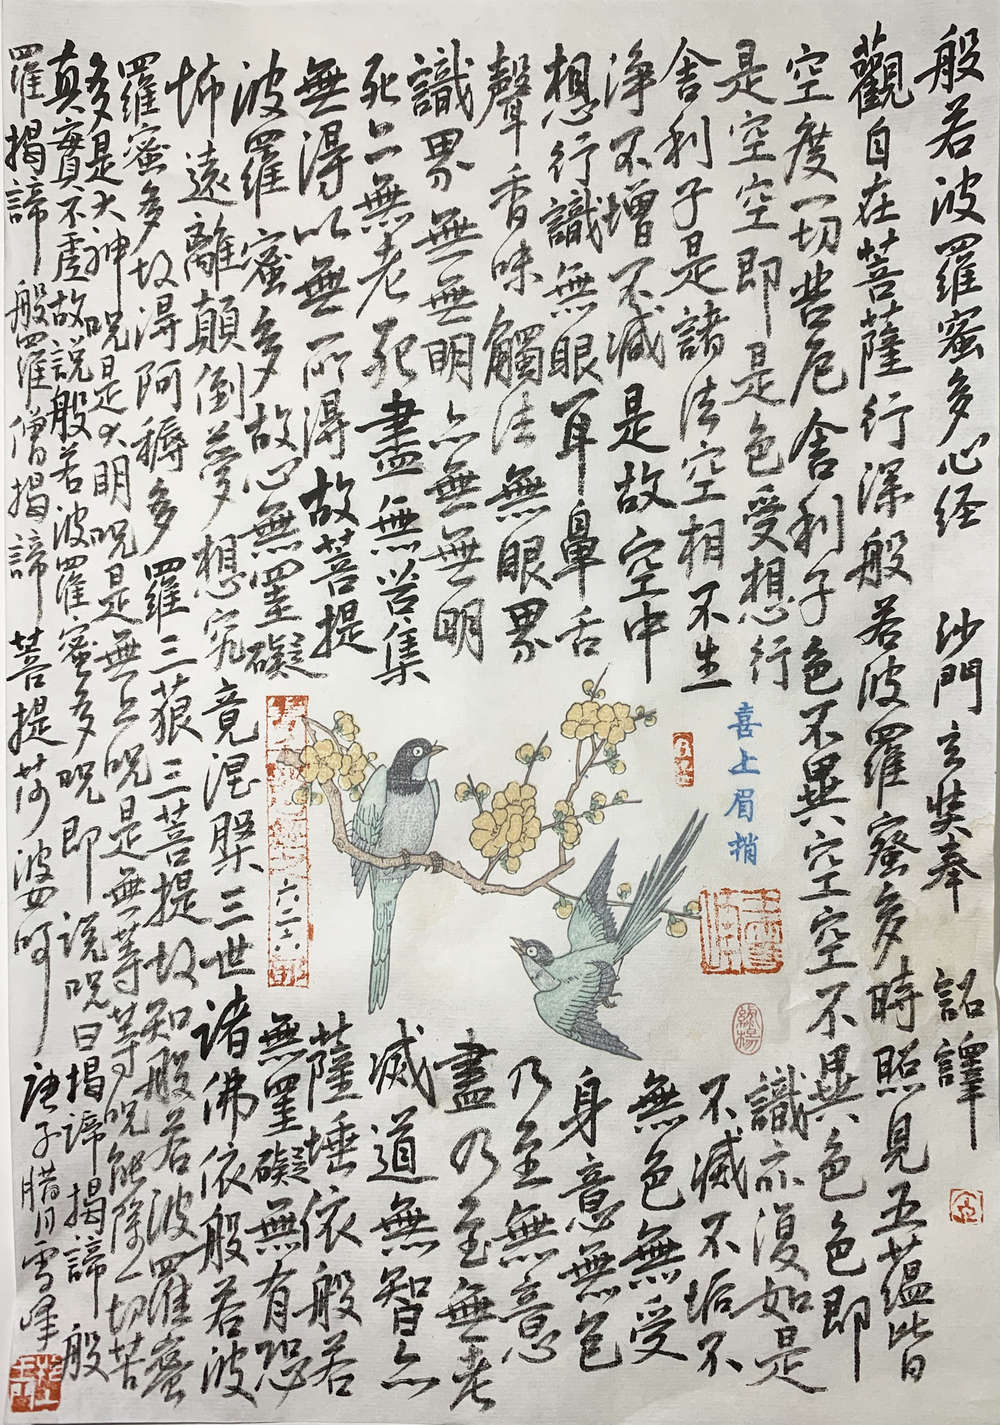 般若波羅蜜多心经 沙門玄奘奉 詔譯
觀自在菩薩行深般若波羅蜜多時照見五蘊皆
空度一切苦厄舍利子色不異空空不異色色即
是空空即是色受想行識亦復如是
舍利子是諸法空相不生不滅不垢不
浄不增不減是故空中無色無受
想行識無眼耳鼻舌身意無色
聲香味觸法無眼界乃至無意
識界無無明亦無無明盡乃至無老
死亦無老死盡無苦集滅道無智亦
無得以無所得故菩提薩埵依般若
波羅蜜多故心無罣礙無罣礙無有恐
怖遠離顛倒夢想究竟涅槃三世諸佛依般若波
羅蜜多故得阿耨多羅三藐三菩提故知般若波羅蜜
多是大神呪是大明呪是無上呪是無等等呪能除一切苦
真實不虛故説般若波羅蜜多呪即説呪曰揭諦揭諦般
羅揭諦般羅僧揭諦菩提莎婆呵
庚子腊月雪峰
喜上眉梢